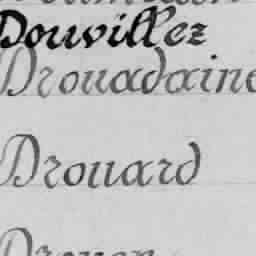 Douvillez
Drouadaine
Drouard